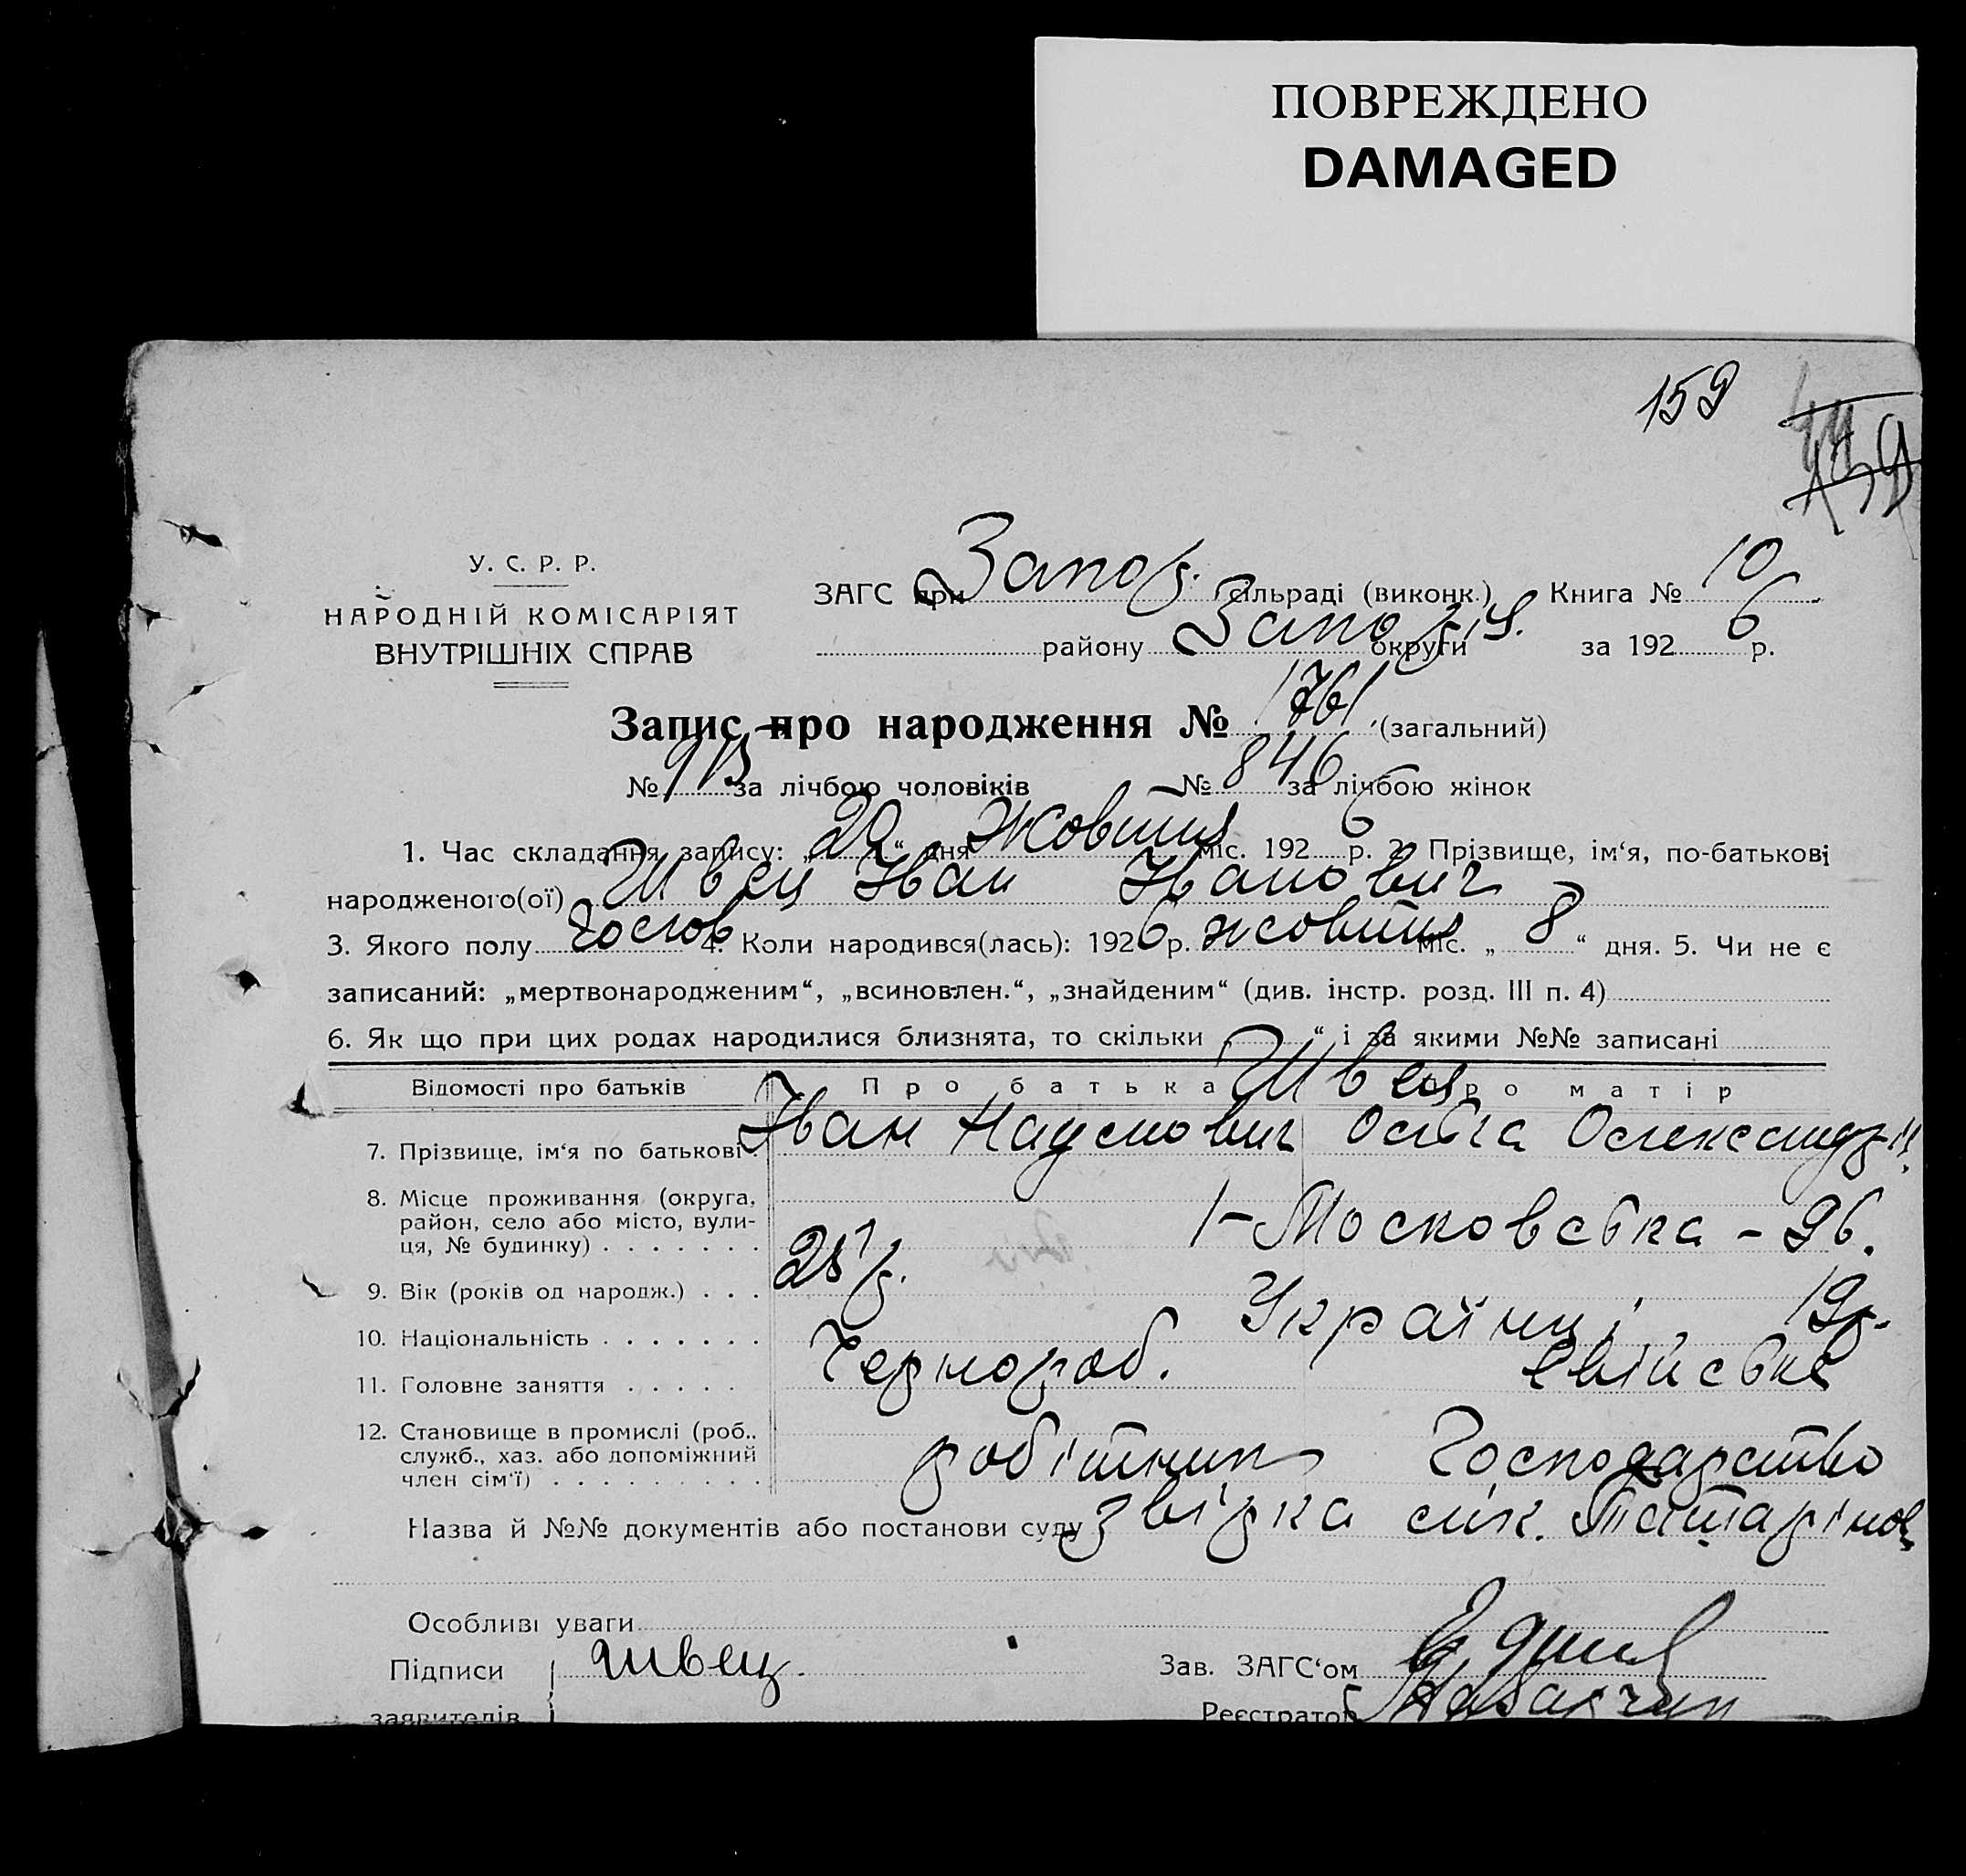 ПОВРЕЖДЕНО
DAMAGED
159
У. С. Р. Р.
НАРОДНІЙ КОМІСАРІЯТ
ВНУТРІШНІХ СПРАВ
ЗАГС при Запор. сільраді (виконк.) Книга № 10
району Запоріз. округи за 1926 р.
Запис про народження № 1761 (загальний)
№ 915 за лічбою чоловіків № 846 за лічбою жінок
1. Час складання запису: „20“ дня Жовтня міс. 1926 р. 2. Прізвище, ім‘я, по-батькові
народженого(ої) Швец Іван Іванович
3. Якого полу чолов 4. Коли народився(лась): 1926 р. жовтня міс. „8“ дня. 5. Чи не є
записаний: „мертвонародженим“, „всиновлен.“, „знайденим“ (див. інстр. розд. III п. 4)
6. Як що при цих родах народилися близнята, то скільки „ “ і за якими №№ записані
Відомості про батьків Про батька Про матір
Швец
7. Прізвище, ім‘я по батькові Іван Наумович Ольга Олександр.
8. Місце проживання (округа,
район, село або місто, вули-
ця, № будинку) . . . . . . . 1-Московська - 96.
9. Вік (років од народж.) . . . 25 р. 19 р.
10. Національність . . . . . . . Українці
11. Головне заняття . . . . . Чернороб. свійське
12. Становище в промислі (роб.,
служб., хаз. або допоміжний
член сім‘ї) . . . . . . . . . робітник Господарство
Назва й №№ документів або постанови суду звірка
Особливі уваги
Підписи Швец. Зав. ЗАГС‘ом
заявителів Реєстратор